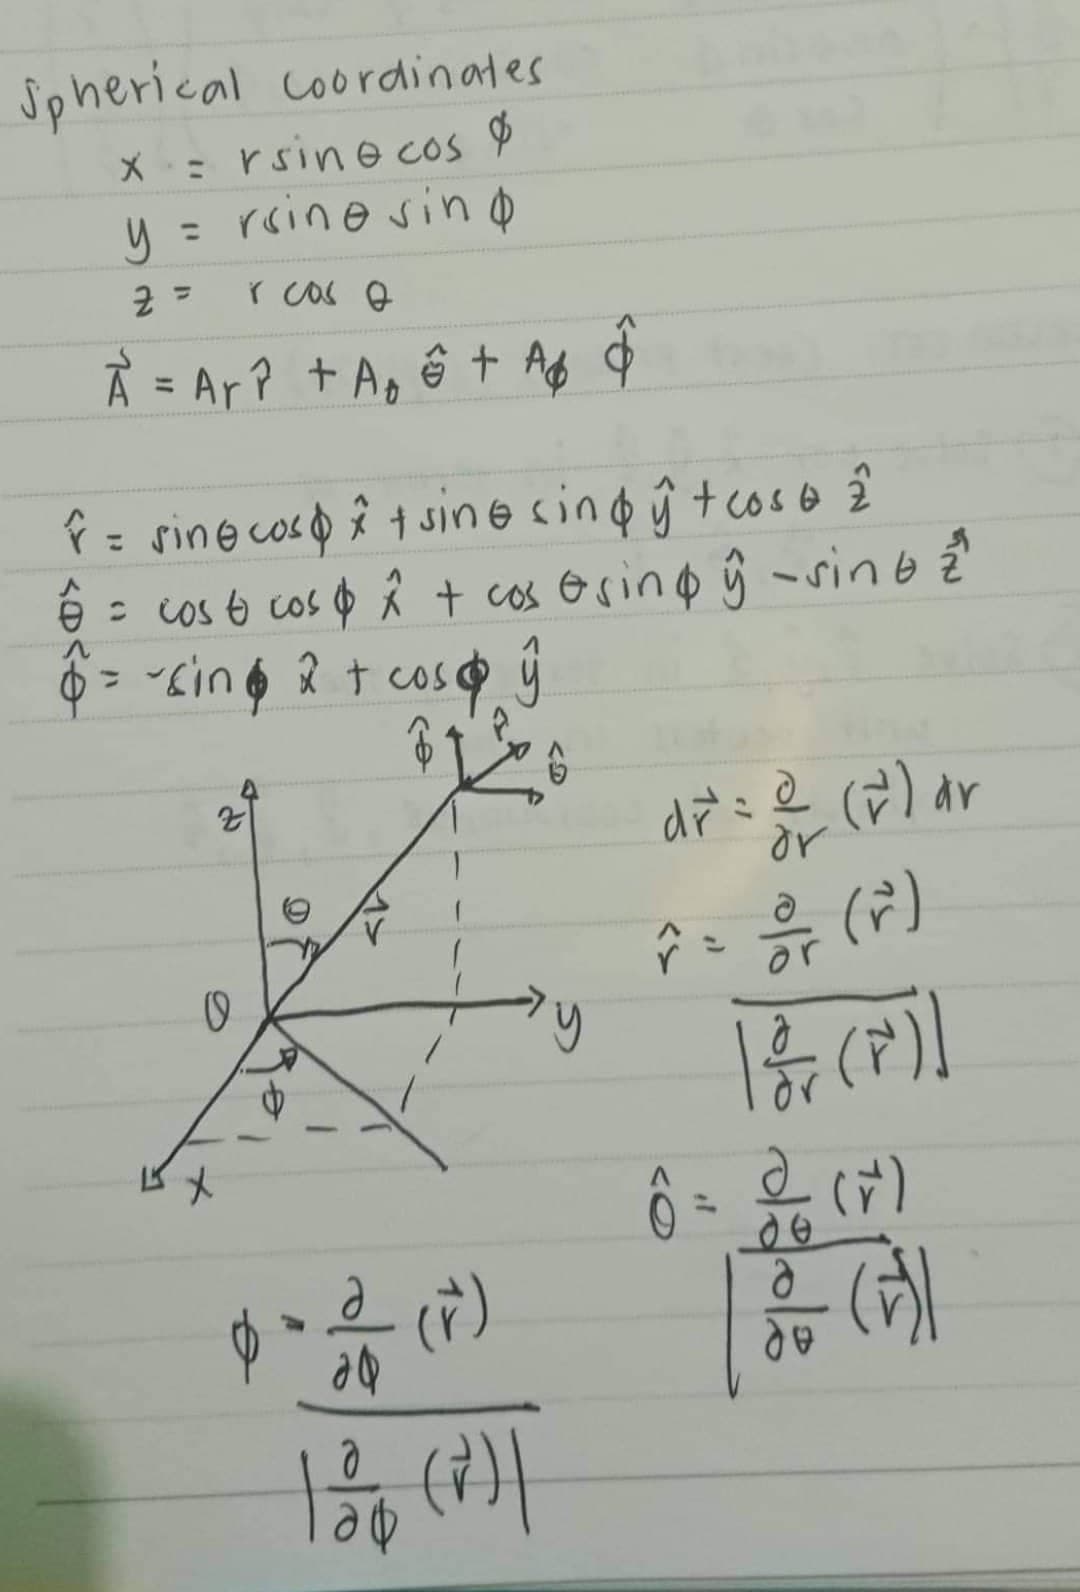 Spherical coordinates
x = r sin θ cos ϕ
y = r sin θ sin ϕ
z = r cos θ
A⃗ = Ar r̂ + Aθ θ̂ + Aϕ ϕ̂
r̂ = sin θ cos ϕ x̂ + sin θ sin ϕ ŷ + cos θ ẑ
θ̂ = cos θ cos ϕ x̂ + cos θ sin ϕ ŷ - sin θ ẑ
ϕ̂ = - sin ϕ x̂ + cos ϕ ŷ
ϕ̂ r̂ θ̂
z
θ
r⃗
O
y
ϕ
x
dr⃗ = ∂/∂r (r⃗) dr
r̂ = ∂/∂r (r⃗)
|∂/∂r (r⃗)|
θ̂ = ∂/∂θ (r⃗)
|∂/∂θ (r⃗)|
ϕ = ∂/∂ϕ (r⃗)
|∂/∂ϕ (r⃗)|